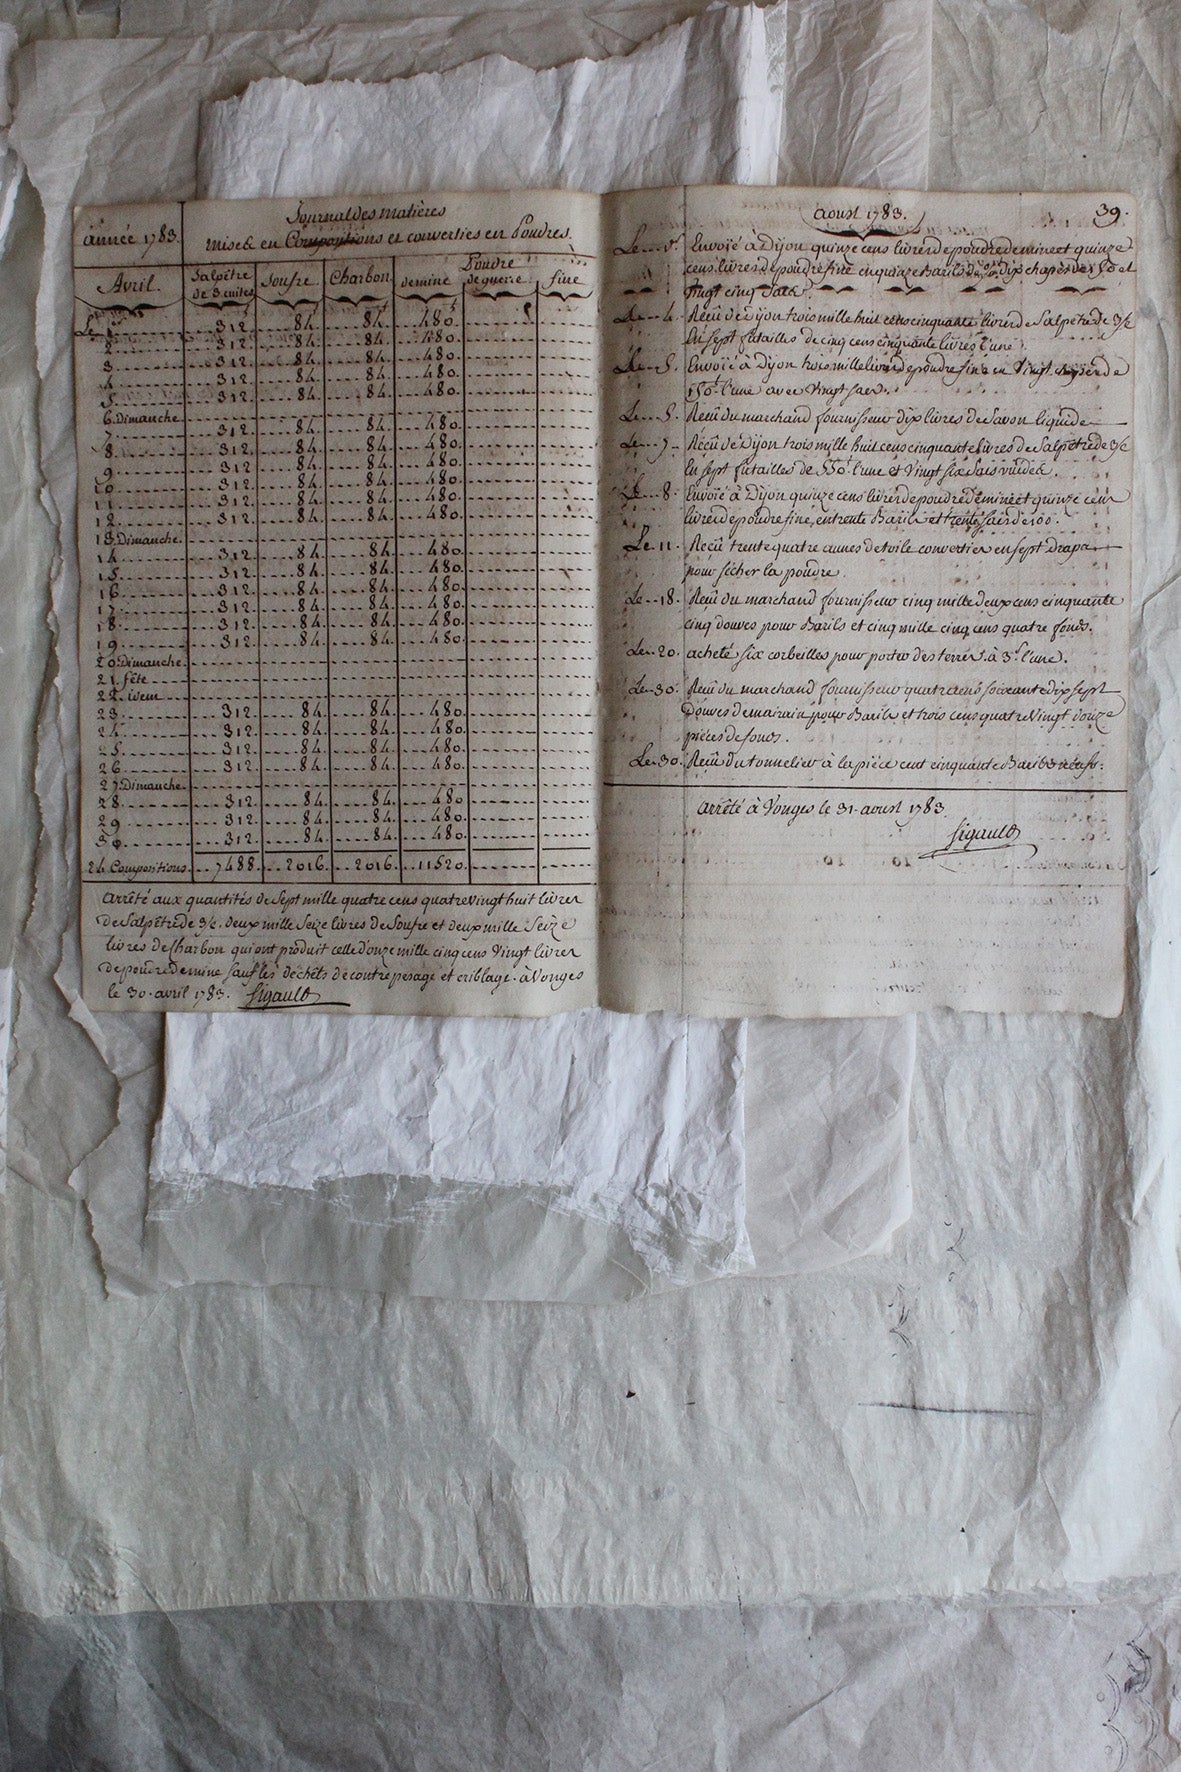 année 1783.
Journal des matières
mises en Compositions et converties en Poudres.
Avril. Salpêtre de 3 cuites Soufre Charbon de mine Poudre de guerre fine
Le 1 312. 84. 84. 480.
2 312. 84. 84. 480.
3 312. 84. 84. 480.
4 312. 84. 84. 480.
5 312. 84. 84. 480.
6. Dimanche
7 312. 84. 84. 480.
8. 312. 84. 84. 480.
9 312 84. 84. 480.
10 312. 84. 84. 480.
11 312. 84. 84. 480.
12. 312. 84. 84. 480.
13. Dimanche.
14. 312. 84. 84. 480.
15. 312. 84. 84. 480.
16 312. 84. 84. 480.
17. 312. 84. 84. 480.
18. 312. 84. 84. 480.
19. 312. 84. 84. 480.
20. Dimanche.
21. fête
22. idem
23. 312. 84. 84. 480.
24. 312. 84. 84. 480.
25. 312. 84. 84. 480.
26. 312. 84. 84. 480.
27. Dimanche.
28. 312. 84. 84. 480
29. 312. 84. 84. 480.
30. 312. 84. 84. 480.
24 Compositions. 7488. 2016. 2016. 11520.
arrêté aux quantités de Sept mille quatre cens quatrevingt huit livres
de Salpêtre de 3/c. deux mille Seize livres de Soufre et deux mille Seize
livres de Charbon qui ont produit celle d'onze mille cinq cens Vingt livres
de poudre de mine sauf les déchéts de contrepesage et criblage. à Vonges
le 30. avril 1783. Sigault
aoust 1783. 39.
Envoïé à Dijon quinze cens livres de poudre de mine et quinze
cens livres de poudre fine en quinze Barils de dix chapes de 150 et
vingt cinq Sacs.
Le 4. Reçû de Dijon trois mille huit cens cinquante livres de Salpêtre de 3/c
en sept futailles de cinq cens cinquante livres l'une.
Le 5. Envoïé à Dijon trois mille livres de poudre fine en Vingt chapes de
150 l. l'une avec Vingt sacs.
Le 5. Reçû du marchand fournisseur dix livres de Savon liquide
Le 7. Reçû de Dijon trois mille huit cens cinquante livres de Salpêtre de 3/c
en sept futailles de 550 l. l'une et Vingt six Sacs vuides.
Le 8. Envoïé à Dijon quinze cens livres de poudre de mine et quinze cens
livres de poudre fine, en trente Barils et trente sacs de 100.
Le 11. Reçû trente quatre aunes de toile converties en sept Draps
pour sécher la poudre.
Le 18. Reçû du marchand fournisseur cinq mille deux cens cinquante
cinq douves pour Barils et cinq mille cinq cens quatre fonds.
Le 20. acheté six corbeilles pour porter des terres. à 3 s. l'une.
Le 30. Reçû du marchand fournisseur quatre cens soixante dix sept
douves de mairain pour Barils et trois cens quatre Vingt douze
pièces de fonds.
Le 30. Reçû du tonnelier à la pièce cent cinquante Barils
arrêté à Vonges le 31. aoust 1783.
Sigault